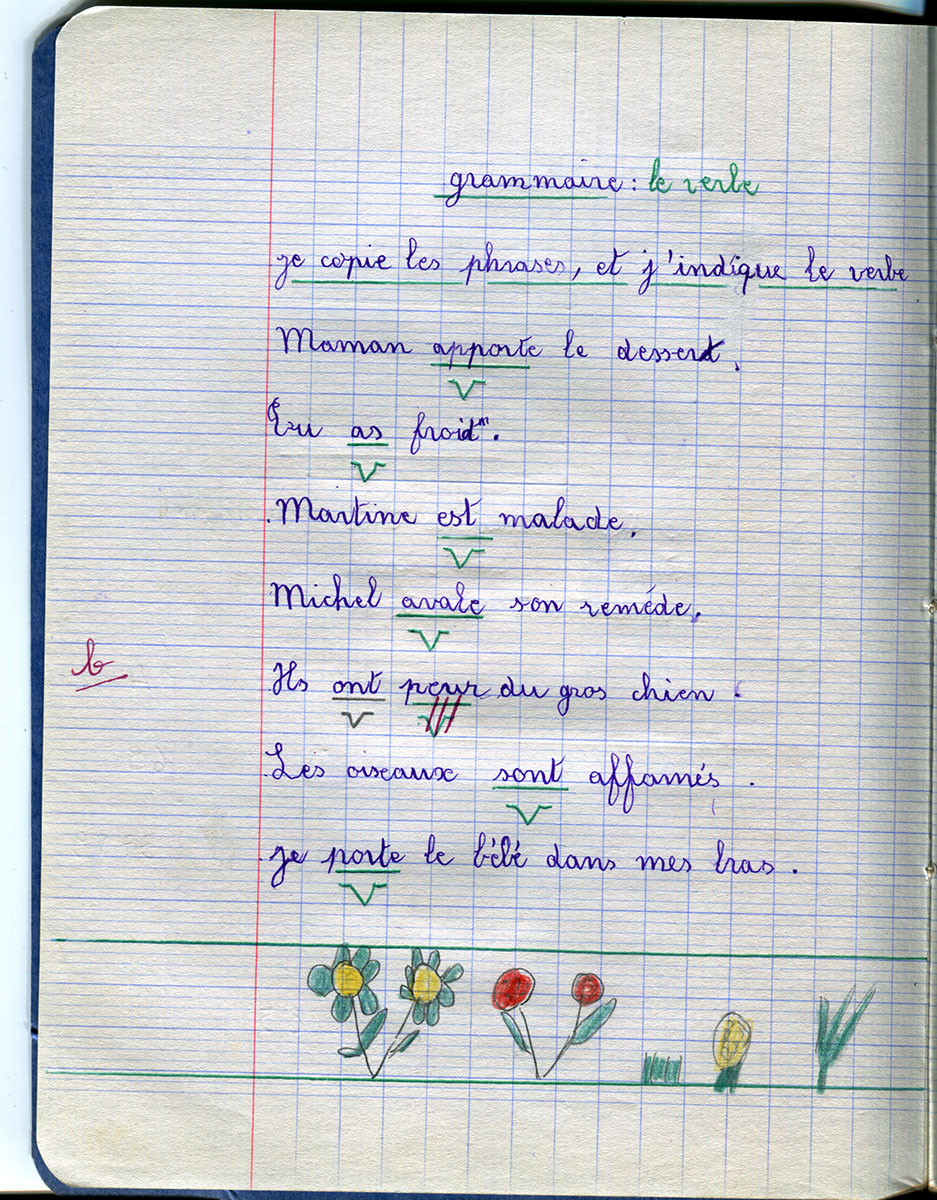 grammaire : le verbe
je copie les phrases, et j'indique le verbe
Maman apporte le dessert.
V
Tu as froid.
V
Martine est malade.
V
Michel avale son reméde.
V
b
Ils ont peur du gros chien.
V V
Les oiseaux sont affamés.
V
je porte le bébé dans mes bras.
V